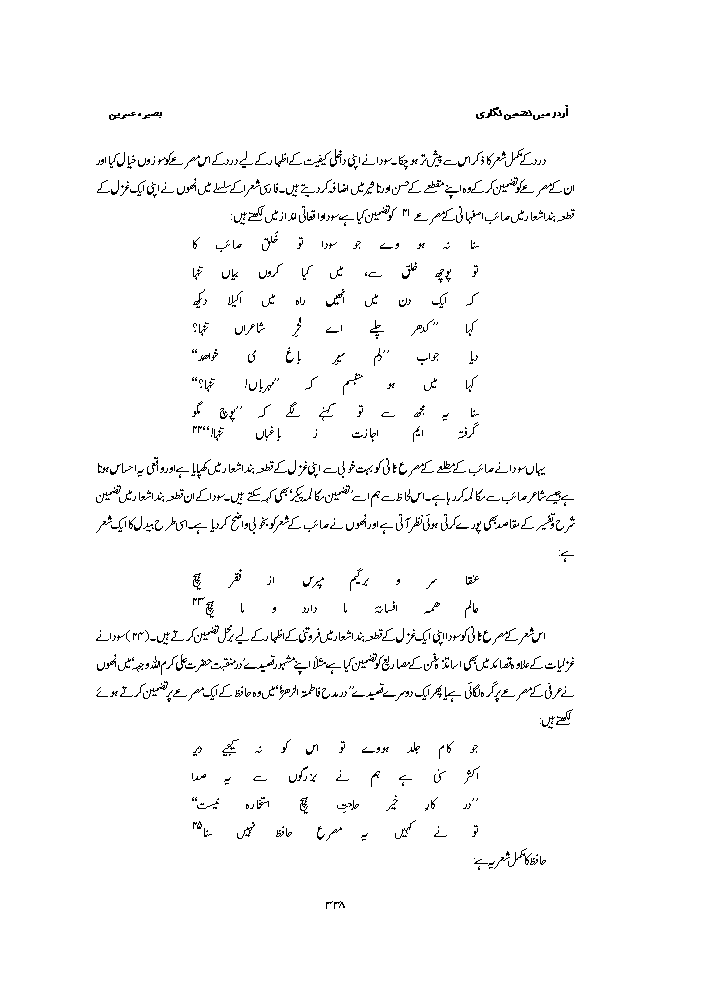 اُردو میں تضمین نگاری
بصیرہ عنبرین
درد کے مکمل شعر کا ذکر اس سے پیش تر ہو چکا۔ سودا نے اپنی داخلی کیفیت کے اظہار کے لیے درد کے اس مصرعے کو موزوں خیال کیا اور
ان کے مصرعے کو تضمین کر کے وہ اپنے مقطعے کے حسن اور تاثیر میں اضافہ کر دیتے ہیں۔ فارسی شعرا کے سلسلے میں انھوں نے اپنی ایک غزل کے
قطعہ بند اشعار میں صائب اصفہانی کے مصرعے ۲۱ کو تضمین کیا ہے، سودا واقعاتی انداز میں لکھتے ہیں:
سنا نہ ہو وے جو سودا تو خُلق صائب کا
تو پوچھ خلق سے، میں کیا کروں بیاں تنہا
کہ ایک دن میں انھیں راہ میں اکیلا دیکھ
کہا ”کدھر چلے اے فخرِ شاعراں تنہا؟
دیا جواب ”دلم سیرِ باغ می خواھد“
کہا میں ہو متبسم کہ ”مہرباں! تنہا؟“
سنا یہ مجھ سے تو کہنے لگے کہ ”پوچ مگو
گرفتہ ایم اجازت ز باغباں تنہا!“۲۲
یہاں سودا نے صائب کے مطلعے کے مصرعِ ثانی کو بہت خوبی سے اپنی غزل کے قطعہ بند اشعار میں کھپایا ہے اور واقعی یہ احساس ہوتا
ہے جیسے شاعر صائب سے مکالمہ کر رہا ہے۔ اس لحاظ سے ہم اسے ’تضمین مکالمہ پیکر‘ بھی کہہ سکتے ہیں۔ سودا کے ان قطعہ بند اشعار میں تضمین
شرح و تفسیر کے مقاصد بھی پورے کرتی ہوئی نظر آتی ہے اور انھوں نے صائب کے شعر کو بخوبی واضح کر دیا ہے۔ اسی طرح بیدل کا ایک شعر
ہے:
عنقا سر و برگیم مپرس از فقرا ہیچ
عالم ھمہ افسانۂ ما دارد و ما ہیچ۲۳
اس شعر کے مصرعِ ثانی کو سودا اپنی ایک غزل کے قطعہ بند اشعار میں فروتنی کے اظہار کے لیے برمحل تضمین کرتے ہیں۔ (۲۴) سودا نے
غزلیات کے علاوہ قصائد میں بھی اساتذۂ فن کے مصاریع کو تضمین کیا ہے مثلاً اپنے مشہور قصیدے ’در منقبت حضرت علی کرم اللہ وجہہ‘ میں انھوں
نے عرفی کے مصرعے پر گرہ لگائی ہے یا پھر ایک دوسرے قصیدے ’در مدح فاطمۃ الزھرا‘ میں وہ حافظ کے ایک مصرعے پر تضمین کرتے ہوئے
لکھتے ہیں:
جو کام جلد ہووے تو اس کو نہ کیجیے دیر
اکثر سنی ہے ہم نے بزرگوں سے یہ صدا
”در کارِ خیر حاجتِ ہیچ استخارہ نیست“
تو نے کہیں یہ مصرعِ حافظ نہیں سنا۲۵
حافظ کا مکمل شعر یہ ہے:
۳۳۸